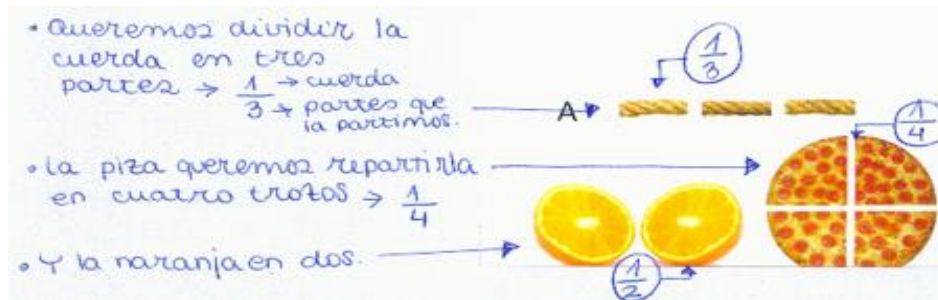 • Queremos dividir la
cuerda en tres
partes → 1/3 → cuerda
→ partes que
la partimos.
A
1/3
1/4
• la piza queremos repartirla
en cuatro trozos → 1/4
• Y la naranja en dos.
1/2